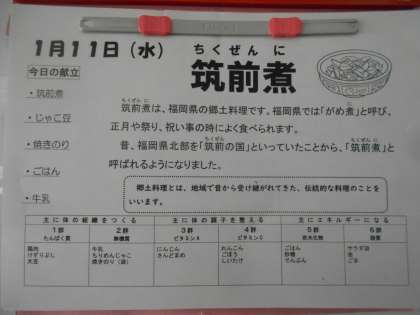 1月11日(水)
ちくぜん に
筑前煮
今日の献立
・筑前煮
・じゃこ豆
・焼きのり
・ごはん
・牛乳
ちくぜん に
筑前煮は、福岡県の郷土料理です。福岡県では「がめ煮」と呼び、
正月や祭り、祝い事の時によく食べられます。
昔、福岡県北部を「筑前の国」といっていたことから、「筑前煮」と
呼ばれるようになりました。
郷土料理とは、地域で昔から受け継がれてきた、伝統的な料理のことを
いいます。
主に体の組織をつくる 主に体の調子を整える 主にエネルギーになる
1群 2群 3群 4群 5群 6群
たんぱく質 無機質 ビタミンA ビタミンC 炭水化物 脂質
鶏肉 牛乳 にんじん れんこん ごはん サラダ油
けずりぶし ちりめんじゃこ さんどまめ ごぼう 砂糖
大豆 焼きのり しいたけ でんぷん ごま